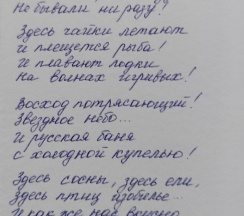 Не бывали ни разу??
Здесь чайки летают
И плещется рыба!
И плавают лодки
На волнах игривых!
Восход потрясающий!
Звездное небо...
И русская баня
С холодной купелью!
Здесь сосны, здесь ели,
Здесь птиц изобилье...
И как же нас вкусно